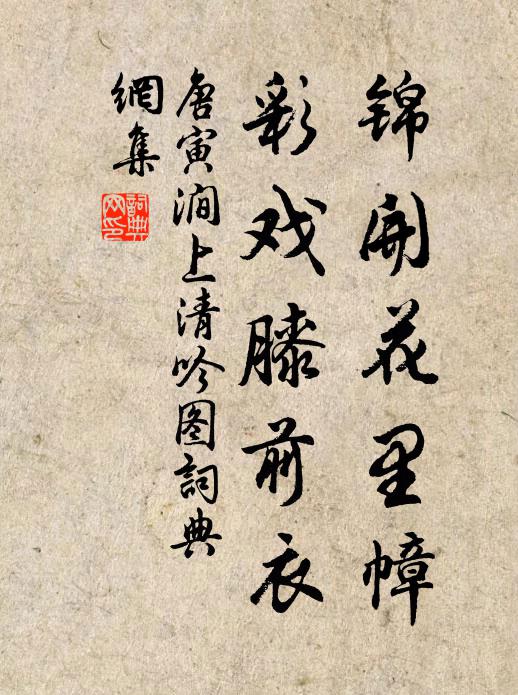 锦开花里幛
彩戏膝前衣
唐寅涧上清吟图词典
網集
詞典
网印